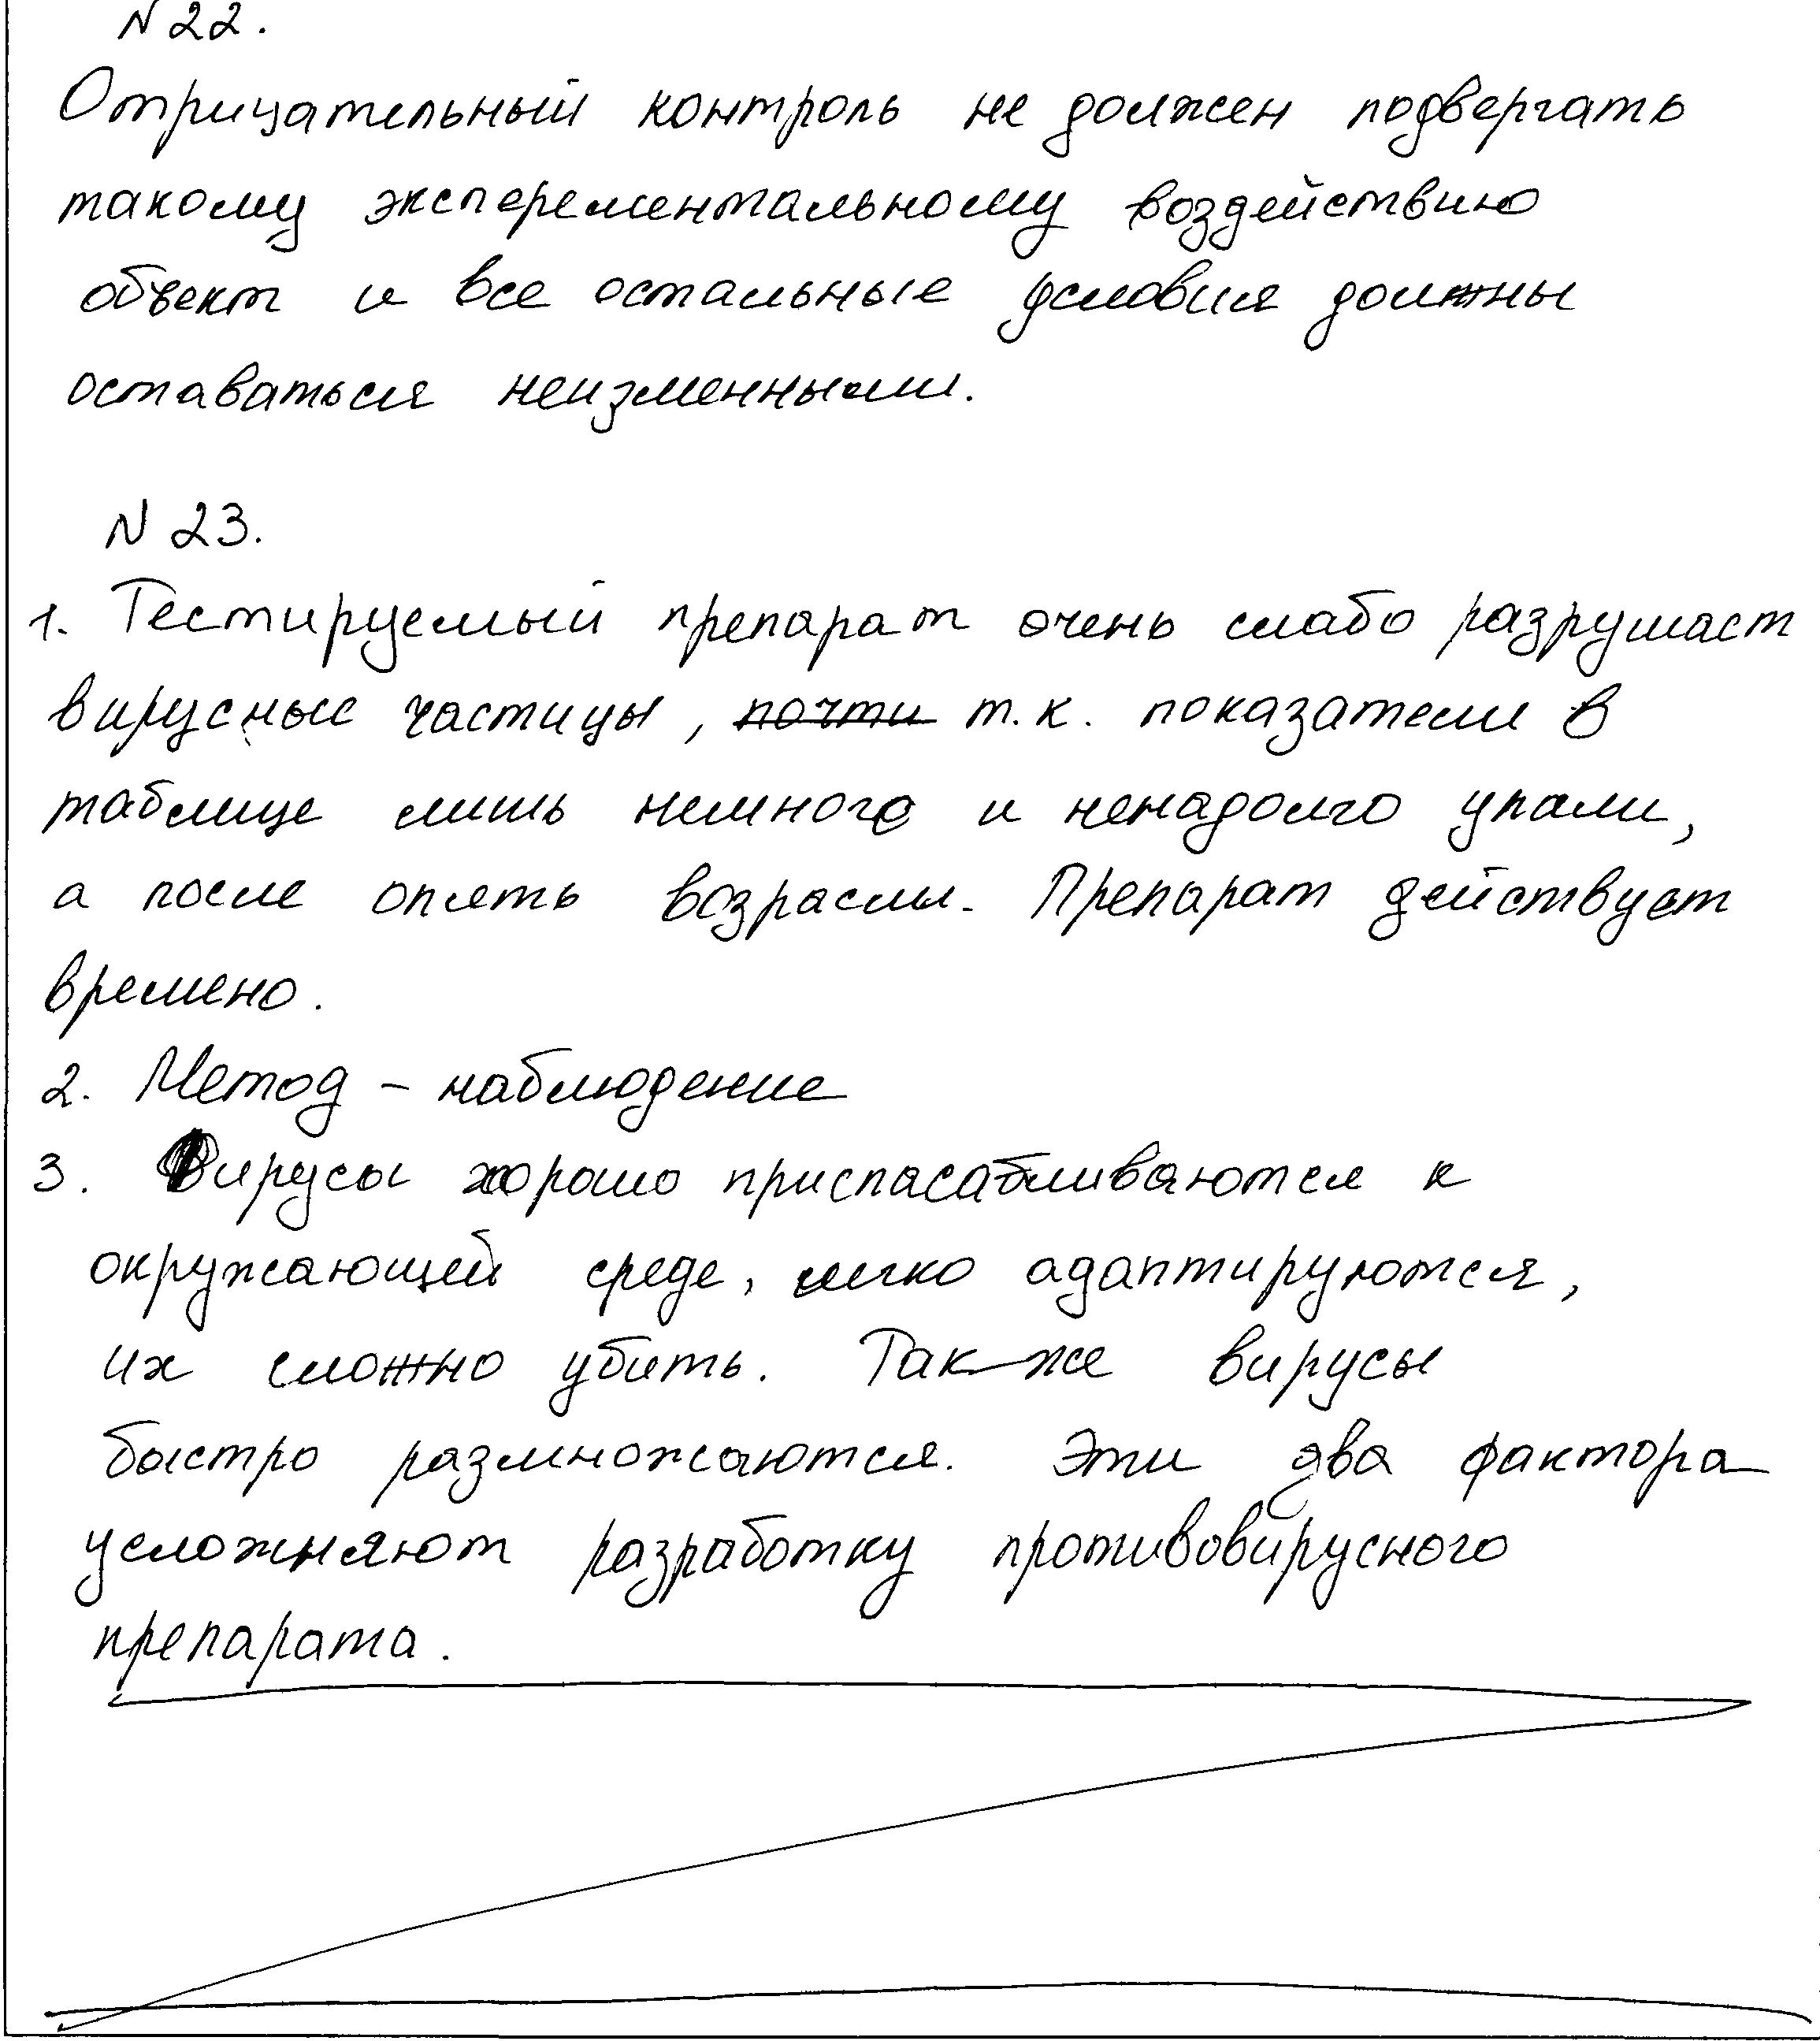 N 22.
Отрицательный контроль не должен подвергать
такому эксперементальному воздействию
объект и все остальные условия должны
оставаться неизменными.
N 23.
1. Тестируемый препарат очень слабо разрушает
вирусные частицы, почти т.к. показатели в
таблице лишь немного и ненадолго упали,
а после опять возрасли. Препарат действует
времено.
2. Метод - наблюдение
3. Вирусы хорошо приспасабливаются к
окружающей среде, легко адаптируются,
их сложно убить. Так же вирусы
быстро размножаются. Эти два фактора
усложняют разработку противовирусного
препарата.